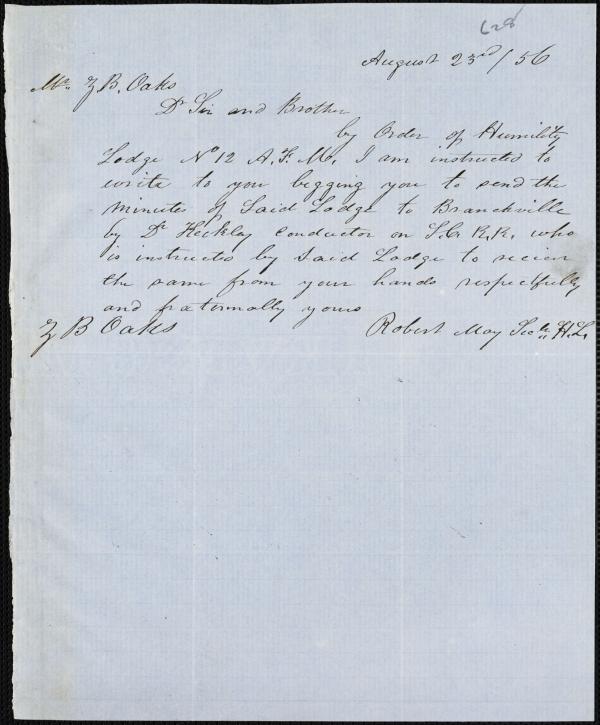 628
August 23rd/56
Mr Z B. Oaks
Dr Sir and Brother
by Order of Humility
Lodge No 12 A. F. M. I am instructed to
write to you begging you to send the
minutes of Said Lodge to Branchville
by Dr Heckley Conductor on S.C. R.R. who
is instructed by Said Lodge to recieve
the same from your hands respectfully
and fraternally yours
Z B Oaks Robert May Secty H.L.